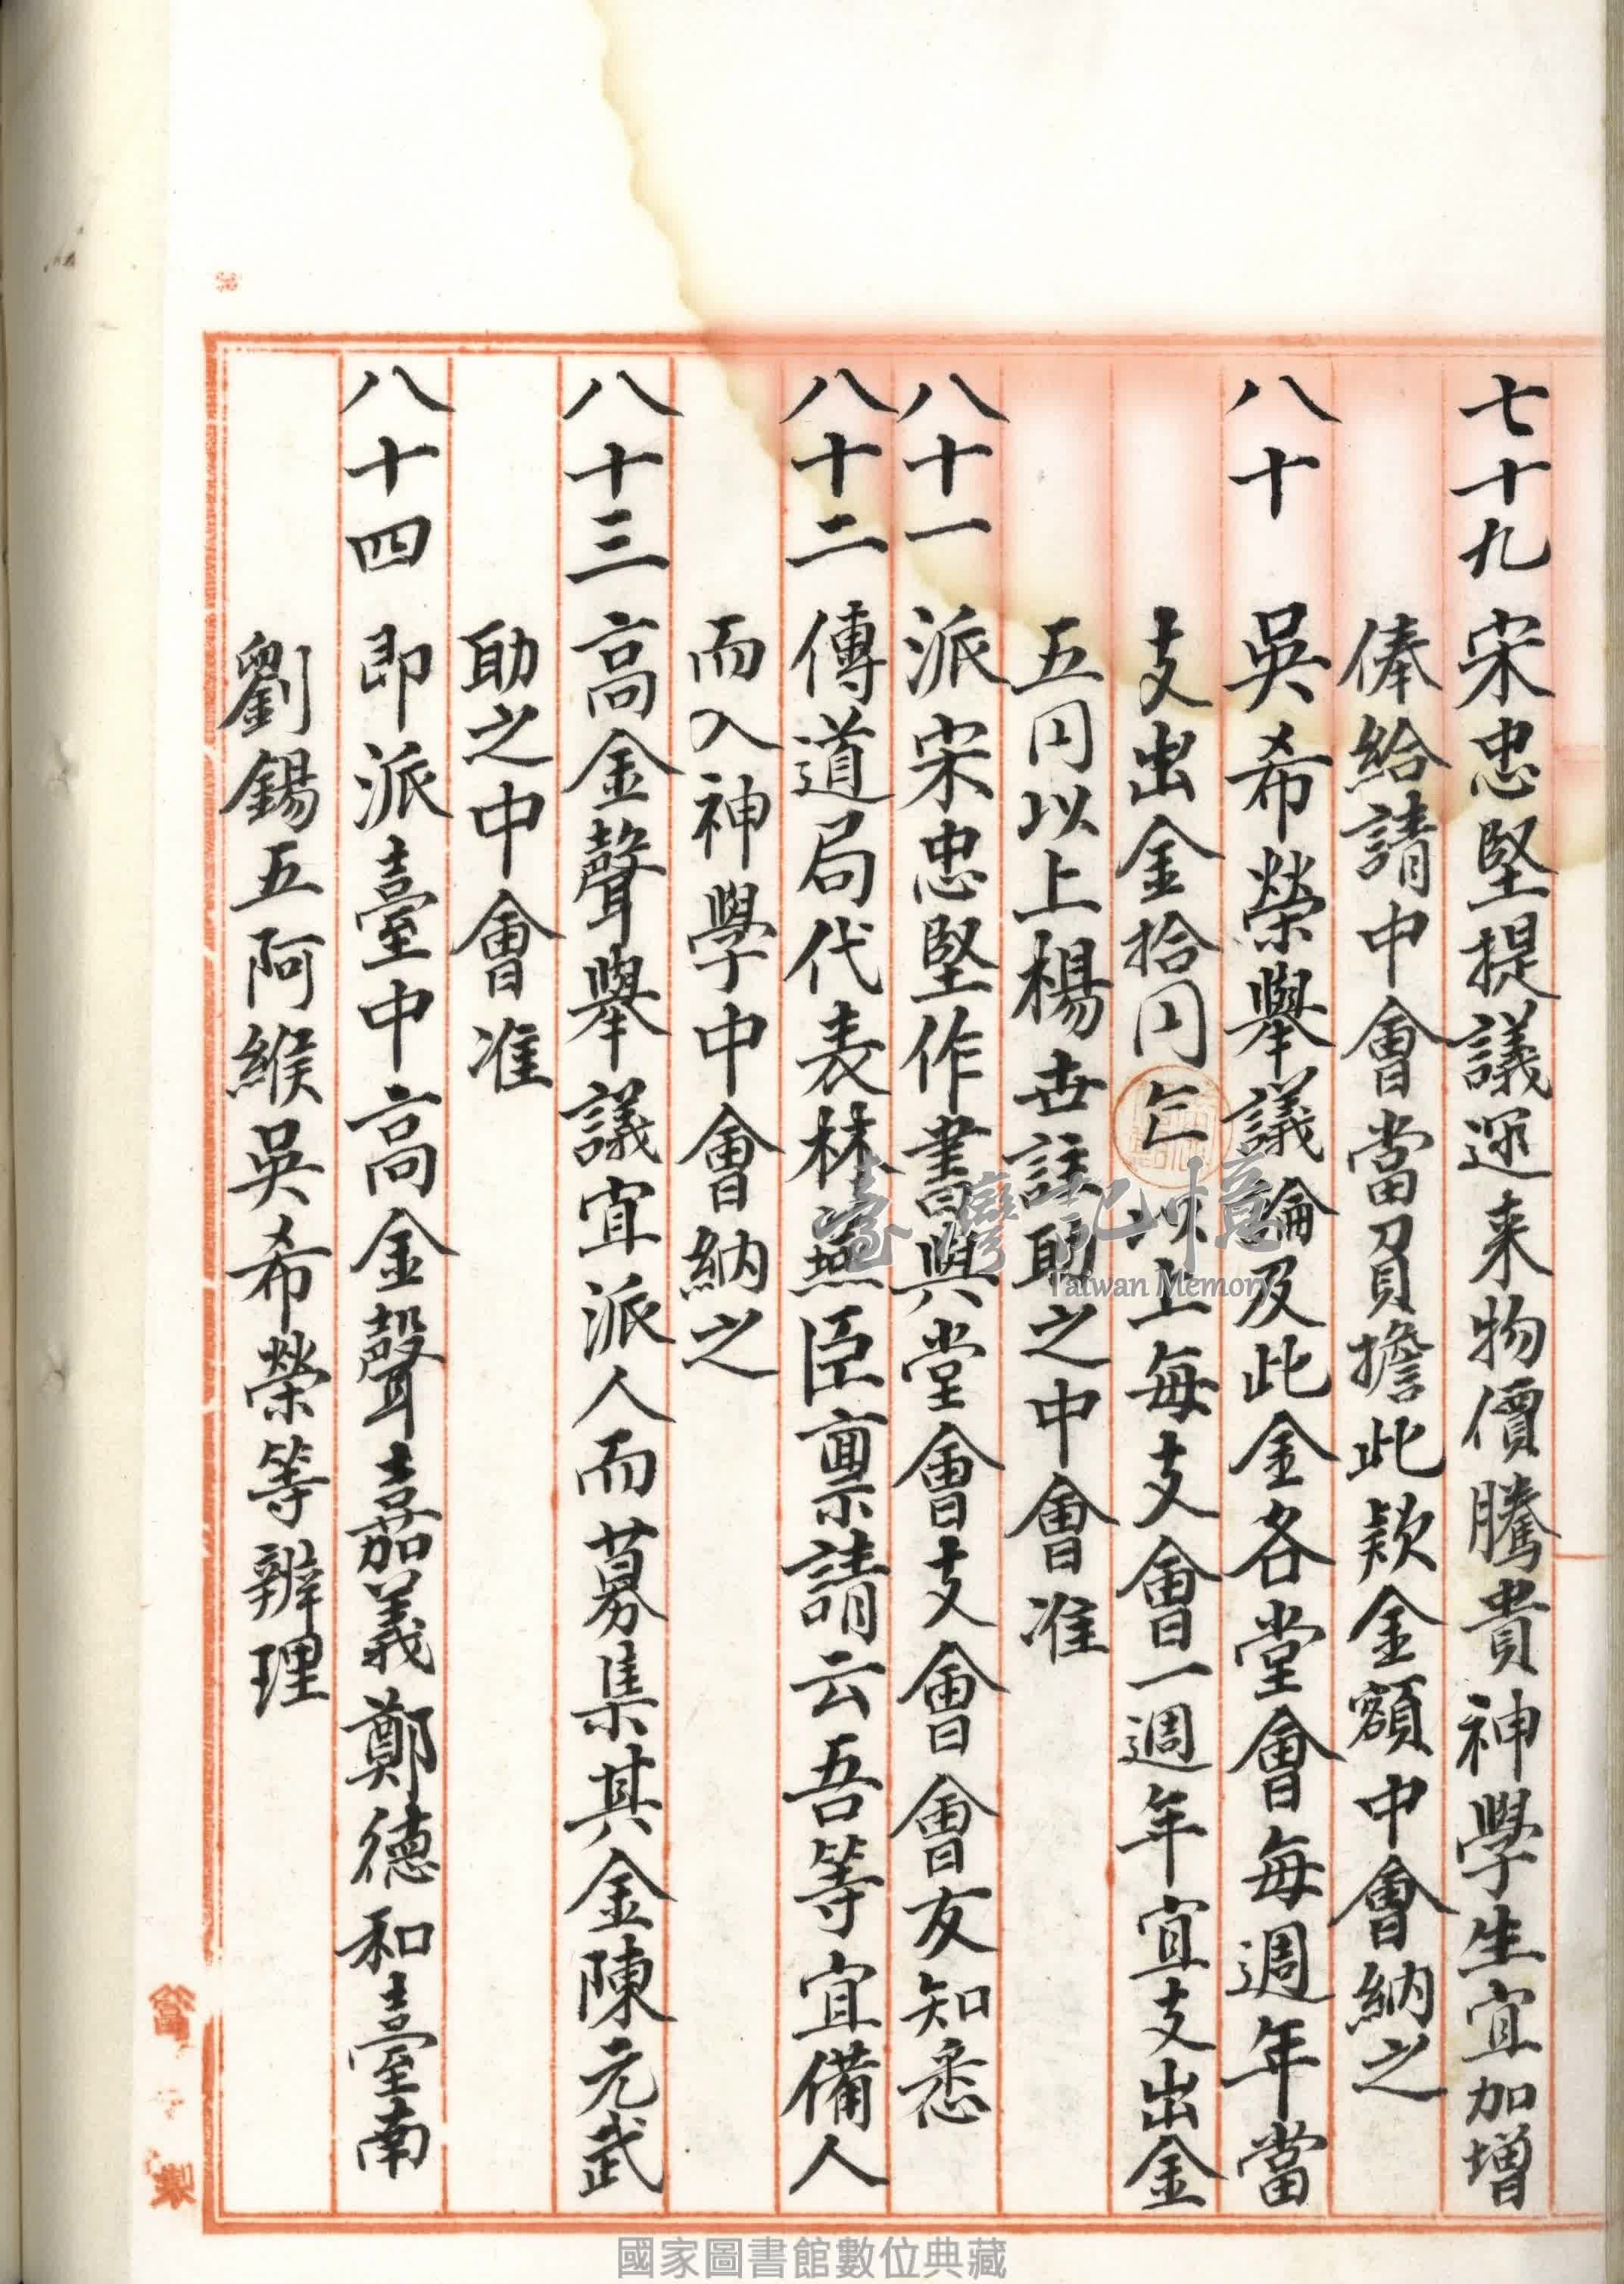 七十九 宋忠堅提議迩来物價騰貴神學生宜加增
俸給請中會當負擔此款金額中會納之
八十 吳希榮舉議論及此金各堂會每週年當
支出金拾円乞以上每支會一週年宜支出金
五円以上楊世註助之中會准
八十一 派宋忠堅作書與堂會支會會友知悉
八十二 傳道局代表林燕臣稟請云吾等宜備人
而入神學中會納之
八十三 高金聲舉議宜派人而募集其金陳元武
助之中會准
八十四 即派臺中高金聲嘉義鄭德和臺南
劉錫五阿緱吳希榮等辨理
臺灣記憶
Taiwan Memory
國家圖書館數位典藏